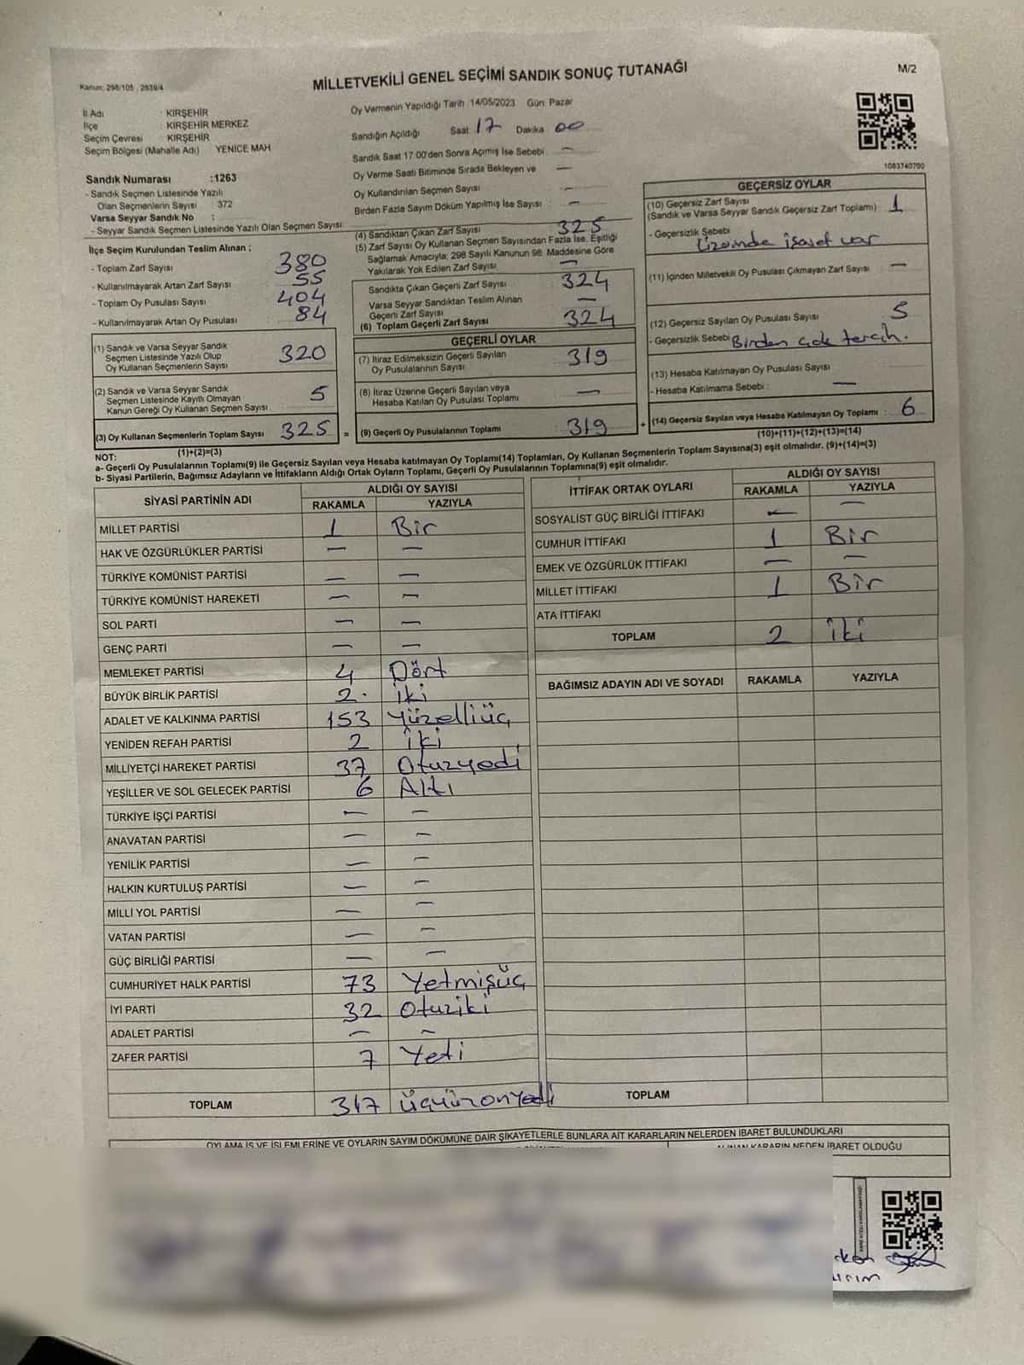 Kanun: 298/105 , 2839/4
MİLLETVEKİLİ GENEL SEÇİMİ SANDIK SONUÇ TUTANAĞI
M/2
İl Adı : KIRŞEHİR
İlçe : KIRŞEHİR MERKEZ
Seçim Çevresi : KIRŞEHİR
Seçim Bölgesi (Mahalle Adı) YENİCE MAH
Sandık Numarası :1263
- Sandık Seçmen Listesinde Yazılı
Olan Seçmenlerin Sayısı : 372
Varsa Seyyar Sandık No :
- Seyyar Sandık Seçmen Listesinde Yazılı Olan Seçmen Sayısı
İlçe Seçim Kurulundan Teslim Alınan ;
- Toplam Zarf Sayısı 380
- Kullanılmayarak Artan Zarf Sayısı 55
- Toplam Oy Pusulası Sayısı 404
- Kullanılmayarak Artan Oy Pusulası 84
(1) Sandık ve Varsa Seyyar Sandık
Seçmen Listesinde Yazılı Olup
Oy Kullanan Seçmenlerin Sayısı 320
(2) Sandık ve Varsa Seyyar Sandık
Seçmen Listesinde Kayıtlı Olmayan
Kanun Gereği Oy Kullanan Seçmen Sayısı 5
(3) Oy Kullanan Seçmenlerin Toplam Sayısı 325 =
(1)+(2)=(3)
Oy Vermenin Yapıldığı Tarih 14/05/2023 Gün: Pazar
Sandığın Açıldığı Saat 17 Dakika 00
Sandık Saat 17:00'den Sonra Açımış İse Sebebi —
Oy Verme Saati Bitiminde Sırada Bekleyen ve
Oy Kullandırılan Seçmen Sayısı —
Birden Fazla Sayım Döküm Yapılmış İse Sayısı —
(4) Sandıktan Çıkan Zarf Sayısı 325
(5) Zarf Sayısı Oy Kullanan Seçmen Sayısından Fazla İse, Eşitliği
Sağlamak Amacıyla; 298 Sayılı Kanunun 98. Maddesine Göre
Yakılarak Yok Edilen Zarf Sayısı —
Sandıkta Çıkan Geçerli Zarf Sayısı 324
Varsa Seyyar Sandıktan Teslim Alınan
Geçerli Zarf Sayısı —
(6) Toplam Geçerli Zarf Sayısı 324
GEÇERLİ OYLAR
(7) İtiraz Edilmeksizin Geçerli Sayılan
Oy Pusulalarının Sayısı 319
(8) İtiraz Üzerine Geçerli Sayılan veya
Hesaba Katılan Oy Pusulası Toplamı —
(9) Geçerli Oy Pusulalarının Toplamı 319 +
1083740700
GEÇERSİZ OYLAR
(10) Geçersiz Zarf Sayısı
(Sandık ve Varsa Seyyar Sandık Geçersiz Zarf Toplamı) 1
- Geçersizlik Sebebi
Üzerinde işaret var
(11) İçinden Milletvekili Oy Pusulası Çıkmayan Zarf Sayısı —
(12) Geçersiz Sayılan Oy Pusulası Sayısı 5
- Geçersizlik Sebebi Birden çok tercih.
(13) Hesaba Katılmayan Oy Pusulası Sayısı
- Hesaba Katılmama Sebebi : —
(14) Geçersiz Sayılan veya Hesaba Katılmayan Oy Toplamı : 6
(10)+(11)+(12)+(13)=(14)
NOT:
a- Geçerli Oy Pusulalarının Toplamı(9) ile Geçersiz Sayılan veya Hesaba katılmayan Oy Toplamı(14) Toplamları, Oy Kullanan Seçmenlerin Toplam Sayısına(3) eşit olmalıdır. (9)+(14)=(3)
b- Siyasi Partilerin, Bağımsız Adayların ve İttifakların Aldığı Ortak Oyların Toplamı, Geçerli Oy Pusulalarının Toplamına(9) eşit olmalıdır.
SİYASİ PARTİNİN ADI ALDIĞI OY SAYISI
RAKAMLA YAZIYLA
MİLLET PARTİSİ 1 Bir
HAK VE ÖZGÜRLÜKLER PARTİSİ — —
TÜRKİYE KOMÜNİST PARTİSİ — —
TÜRKİYE KOMÜNİST HAREKETİ — —
SOL PARTİ — —
GENÇ PARTİ — —
MEMLEKET PARTİSİ 4 Dört
BÜYÜK BİRLİK PARTİSİ 2. iki
ADALET VE KALKINMA PARTİSİ 153 Yüzelliüç
YENİDEN REFAH PARTİSİ 2 İki
MİLLİYETÇİ HAREKET PARTİSİ 37 Otuzyedi
YEŞİLLER VE SOL GELECEK PARTİSİ 6 Altı
TÜRKİYE İŞÇİ PARTİSİ — —
ANAVATAN PARTİSİ — —
YENİLİK PARTİSİ — —
HALKIN KURTULUŞ PARTİSİ — —
MİLLİ YOL PARTİSİ — —
VATAN PARTİSİ — —
GÜÇ BİRLİĞİ PARTİSİ — —
CUMHURİYET HALK PARTİSİ 73 Yetmişüç
İYİ PARTİ 32 Otuziki
ADALET PARTİSİ — —
ZAFER PARTİSİ 7 Yedi
TOPLAM 317 üçyüzonyedi
İTTİFAK ORTAK OYLARI ALDIĞI OY SAYISI
RAKAMLA YAZIYLA
SOSYALİST GÜÇ BİRLİĞİ İTTİFAKI — —
CUMHUR İTTİFAKI 1 Bir
EMEK VE ÖZGÜRLÜK İTTİFAKI — —
MİLLET İTTİFAKI 1 Bir
ATA İTTİFAKI
TOPLAM 2 İki
BAĞIMSIZ ADAYIN ADI VE SOYADI RAKAMLA YAZIYLA
TOPLAM
OYLAMA İŞ VE İŞLEMLERİNE VE OYLARIN SAYIM DÖKÜMÜNE DAİR ŞİKAYETLERLE BUNLARA AİT KARARLARIN NELERDEN İBARET BULUNDUKLARI
ALINAN KARARIN NEDEN İBARET OLDUĞU